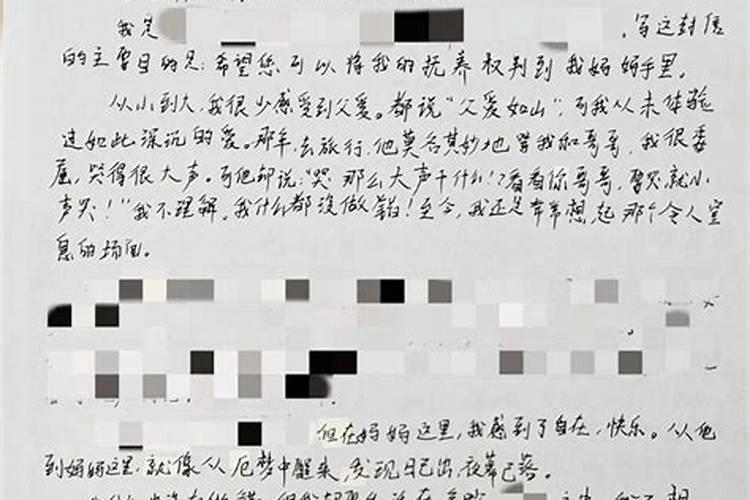 我是 ，写这封信
的主要目的是：希望您可以将我的抚养权判到我妈妈手里。
从小到大，我很少感受到父爱。都说“父爱如山”，可我从未体验
过如此深沉的爱。那年去旅行，他莫名其妙地骂我和哥哥，我很委
屈，哭得很大声。可他却说：“哭那么大声干什么！？看看你哥哥，要哭就小
声哭！”我不理解。我什么都没做错！至今，我还是常常想起那个令人窒
息的场面。
但在妈妈这里，我感到了自在，快乐。从他
到妈妈这里，就像从厄梦中醒来，发现日已出，夜幕已落。